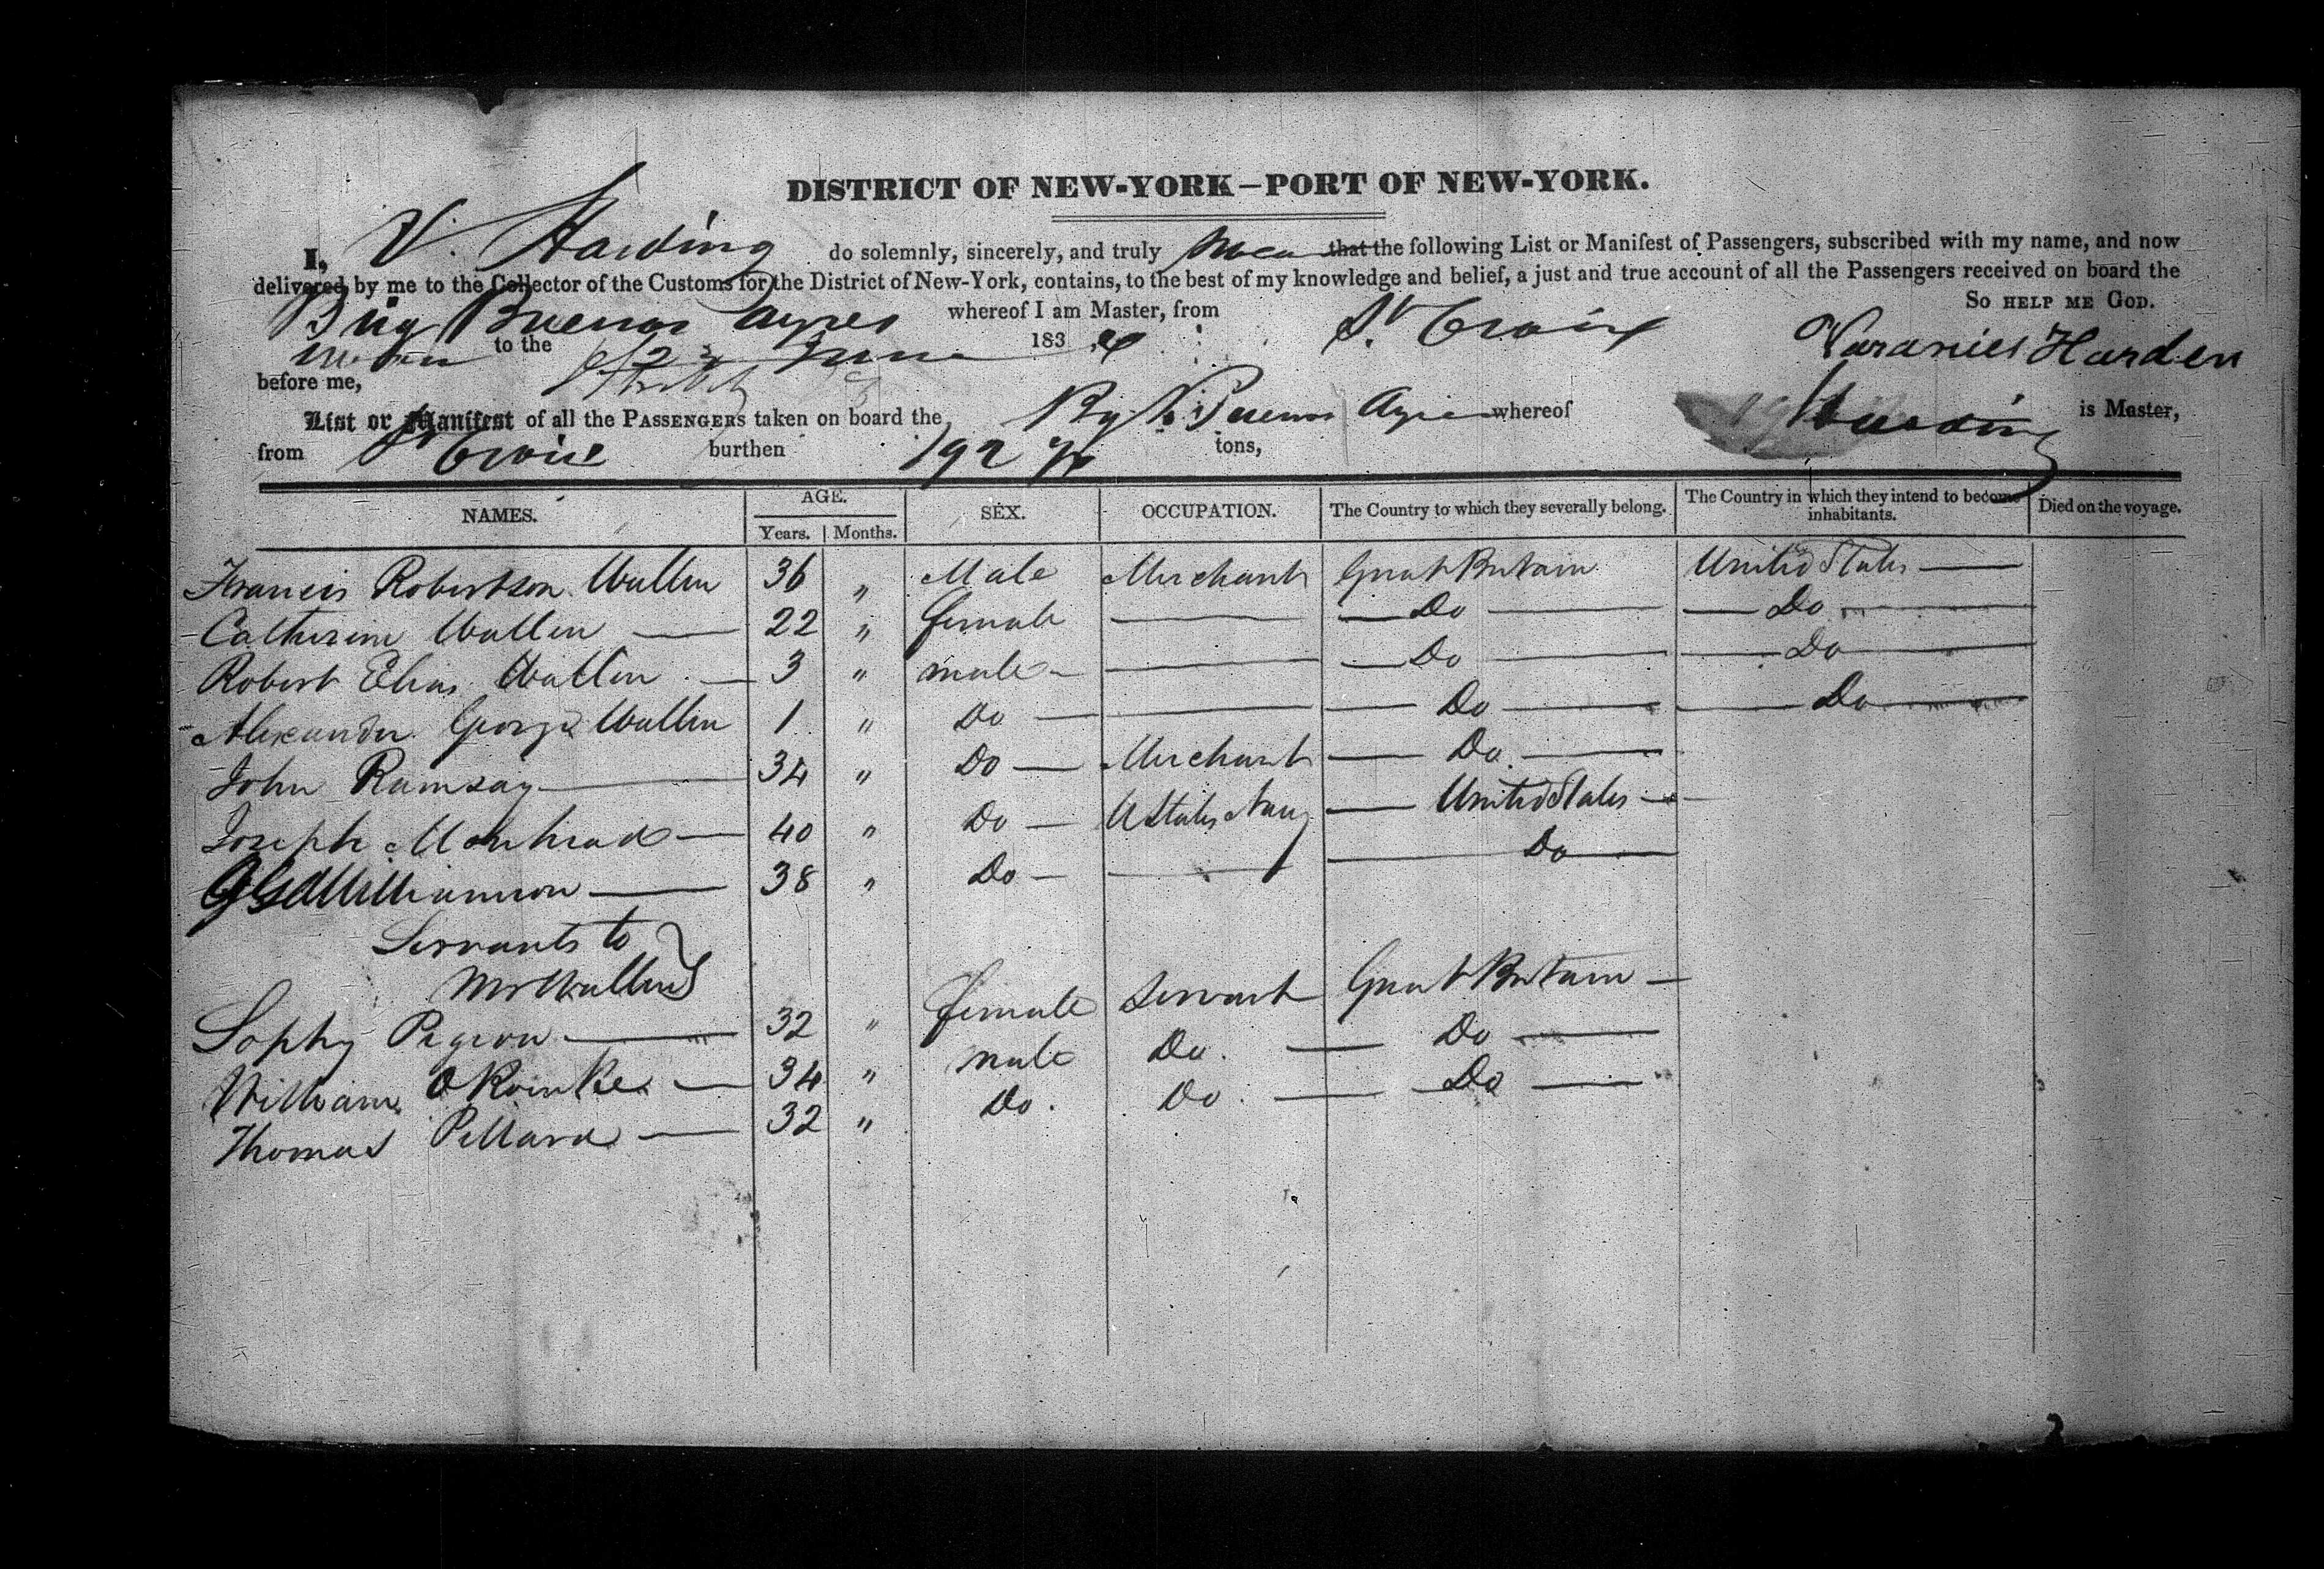 DISTRICT OF NEW-YORK—PORT OF NEW-YORK.
I, V. Harding do solemnly, sincerely, and truly that the following List or Manifest of Passengers, subscribed with my name, and now
delivered by me to the Collector of the Customs for the District of New-York, contains, to the best of my knowledge and belief, a just and true account of all the Passengers received on board the
Brig Buenos Ayres whereof I am Master, from St Croix So HELP ME GOD.
to the June 183
before me, Harden
List or Manifest of all the PASSENGERS taken on board the Buenos Ayres whereof Harding is Master,
from St Croix burthen 192 tons,
NAMES. AGE. SEX. OCCUPATION. The Country to which they severally belong. The Country in which they intend to become inhabitants. Died on the voyage.
Years. Months.
Francis Robertson Wallen 36 " Male Merchant Great Britain United States
Catherine Wallen 22 " female Do Do
Robert Elias Wallen 3 " male Do Do
Alexander George Wallen 1 " Do Do Do
John Ramsay 34 " Do Merchant Do
Joseph 40 " Do UStates Navy United States
Williamson 38 " Do Do
Servants to
Mr Wallen
Sophy Pigeon 32 " female Servant Great Britain
William 34 " male Do. Do
Thomas Pillard 32 " Do. Do. Do